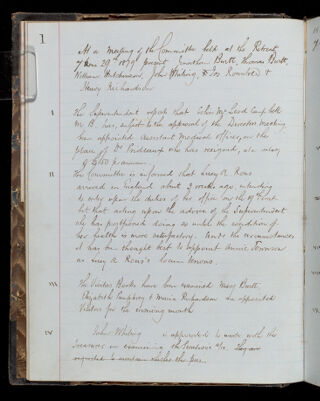 1
At a meeting of the Committee held at the Retreat
29th 1879 present Jonathan Burtt, Thomas Burtt,
William Hutchinson, John Whiting, &
Henry Richardson
I
The Superintendent reports that John
M.B. has, subject to the approval of the Directors meeting
been appointed Assistant Medical officer, in the
place of Dr Prideaux who has resigned, at a salary
of £150 per annum.
II
The Committee is informed that Lucy A Rous
arrived in England about 3 weeks intending
to enter upon the duties of her office on the 1st
but that acting upon the advice of the Superintendent
she has postponed doing so until the condition of
her health is more satisfactory. Under the circumstances
it has been thought best to appoint Annie
as Lucy A Rous's locum tenens.
III
The Visitors Books have been examined Mary Burtt,
Elizabeth & Maria Richardson are appointed
Visitors for the ensuing month
IV
John Whiting is appointed to unite with the
Treasurer in examining the &c. They are
requested to ascertain whether the